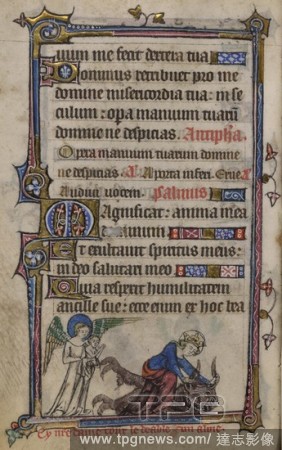 uum me fecit dextera tua
Dominus retribuet pro me
domine misericordia tua: in se
culum: opera manuum tuarum
domine ne despicias. Antipha.
Opera manuum tuarum domine
ne despicias. A porta inferi. Erue
Audivi vocem. Psalmus
Magnificat: anima mea
dominum
Et exultavit spiritus meus:
in deo salutari meo
Quia respexit humilitatem
ancille sue: ecce enim ex hoc bea
TPG
www.tpgnews.com/達志影像